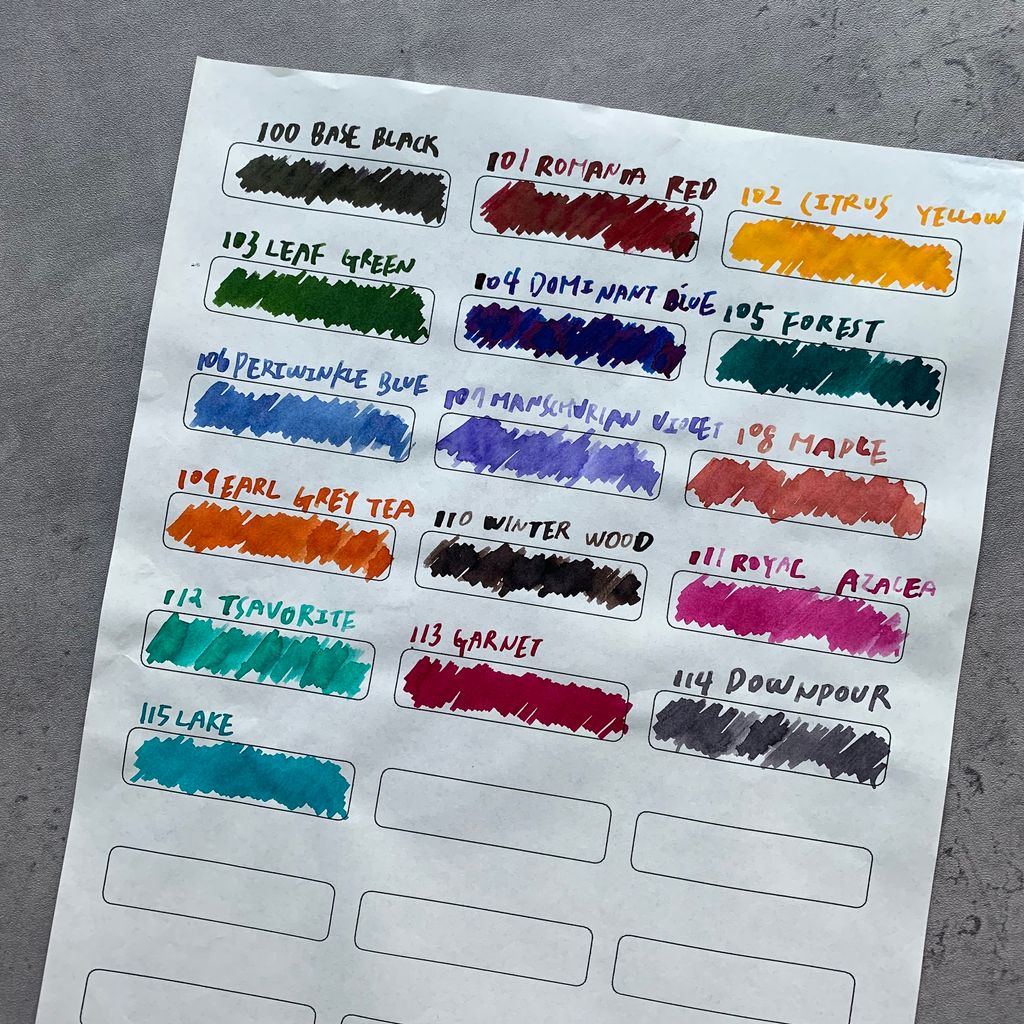 100 BASE BLACK
101 ROMANIA RED
102 CITRUS YELLOW
103 LEAF GREEN
104 DOMINANT BLUE
105 FOREST
106 PERIWINKLE BLUE
107 MANSCHURIAN VIOLET
108 MAPLE
109 EARL GREY TEA
110 WINTER WOOD
111 ROYAL AZALEA
112 TSAVORITE
113 GARNET
114 DOWNPOUR
115 LAKE